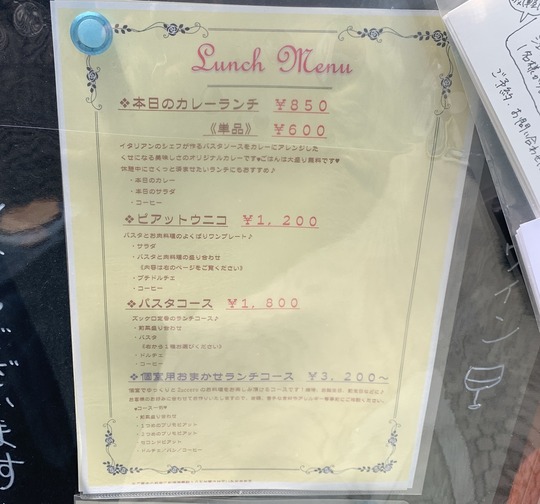 Lunch Menu
❖本日のカレーランチ ¥850
《単品》 ¥600
イタリアンのシェフが作るパスタソースをカレーにアレンジした
くせになる美味しさのオリジナルカレーです♥ごはんは大盛り無料です♥
休憩中にさくっと済ませたいランチにもおすすめ♪
・本日のカレー
・本日のサラダ
・コーヒー
❖ピアットウニコ ¥1,200
パスタとお肉料理のよくばりワンプレート♪
・サラダ
・パスタと肉料理の盛り合わせ
《内容は右のページをご覧ください》
・プチドルチェ
・コーヒー
❖パスタコース ¥1,800
ズッケロ定番のランチコース♪
・前菜盛り合わせ
・パスタ
《右から1種お選びください》
・ドルチェ
・コーヒー
❖個室用おまかせランチコース ¥3,200〜
・前菜盛り合わせ
・1つめのプリモピアット
・2つめのプリモピアット
・セコンドピアット
・ドルチェ/パン/コーヒー
1名様か
ご予約、お問い合わせ
ワイン
ございます